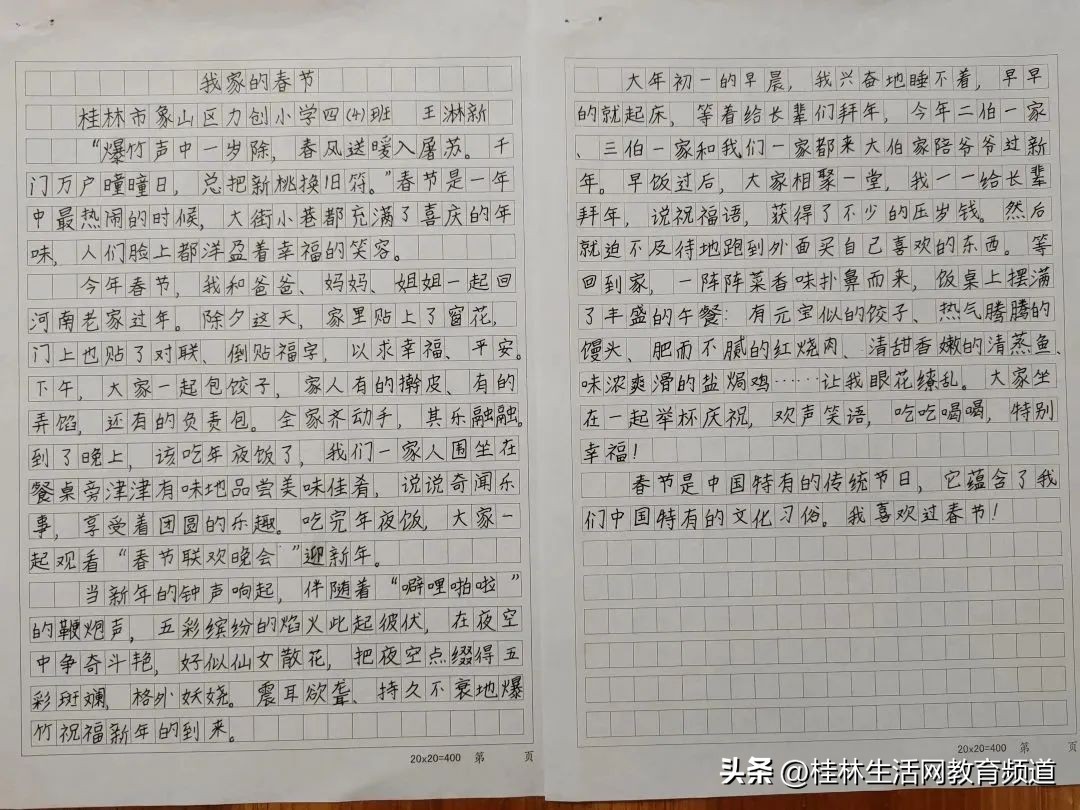 我家的春节
桂林市象山区力创小学四(4)班 王淋新
“爆竹声中一岁除，春风送暖入屠苏。千
门万户曈曈日，总把新桃换旧符。”春节是一年
中最热闹的时候，大街小巷都充满了喜庆的年
味，人们脸上都洋盈着幸福的笑容。
今年春节，我和爸爸、妈妈、姐姐一起回
河南老家过年。除夕这天，家里贴上了窗花，
门上也贴了对联、倒贴福字，以求幸福、平安。
下午，大家一起包饺子，家人有的擀皮、有的
弄馅，还有的负责包。全家齐动手，其乐融融。
到了晚上，该吃年夜饭了，我们一家人围坐在
餐桌旁津津有味地品尝美味佳肴，说说奇闻乐
事，享受着团圆的乐趣。吃完年夜饭，大家一
起观看“春节联欢晚会”迎新年。
当新年的钟声响起，伴随着“噼哩啪啦”
的鞭炮声，五彩缤纷的焰火此起彼伏，在夜空
中争奇斗艳，好似仙女散花，把夜空点缀得五
彩斑斓，格外妖娆。震耳欲聋、持久不衰地爆
竹祝福新年的到来。
20×20=400 第 页
大年初一的早晨，我兴奋地睡不着，早早
的就起床，等着给长辈们拜年，今年二伯一家
、三伯一家和我们一家都来大伯家陪爷爷过新
年。早饭过后，大家相聚一堂，我一一给长辈
拜年，说祝福语，获得了不少的压岁钱。然后
就迫不及待地跑到外面买自己喜欢的东西。等
回到家，一阵阵菜香味扑鼻而来，饭桌上摆满
了丰盛的午餐：有元宝似的饺子、热气腾腾的
馒头、肥而不腻的红烧肉、清甜香嫩的清蒸鱼、
味浓爽滑的盐焗鸡……让我眼花缭乱。大家坐
在一起举杯庆祝，欢声笑语，吃吃喝喝，特别
幸福！
春节是中国特有的传统节日，它蕴含了我
们中国特有的文化习俗。我喜欢过春节！
20×20=400 第 页
头条 @桂林生活网教育频道